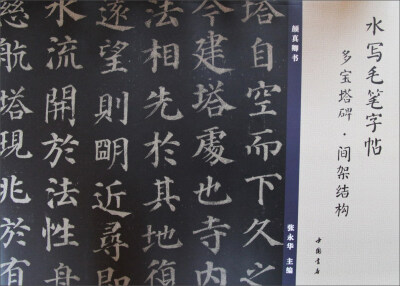 水写毛笔字帖
多宝塔碑·间架结构
中国书店
颜真卿书
张永华 主编
塔自空而下久之
今建塔處也寺内
法相先於其地復
遠望則眀近尋即
水流開於法性舟
慈航塔現兆於有